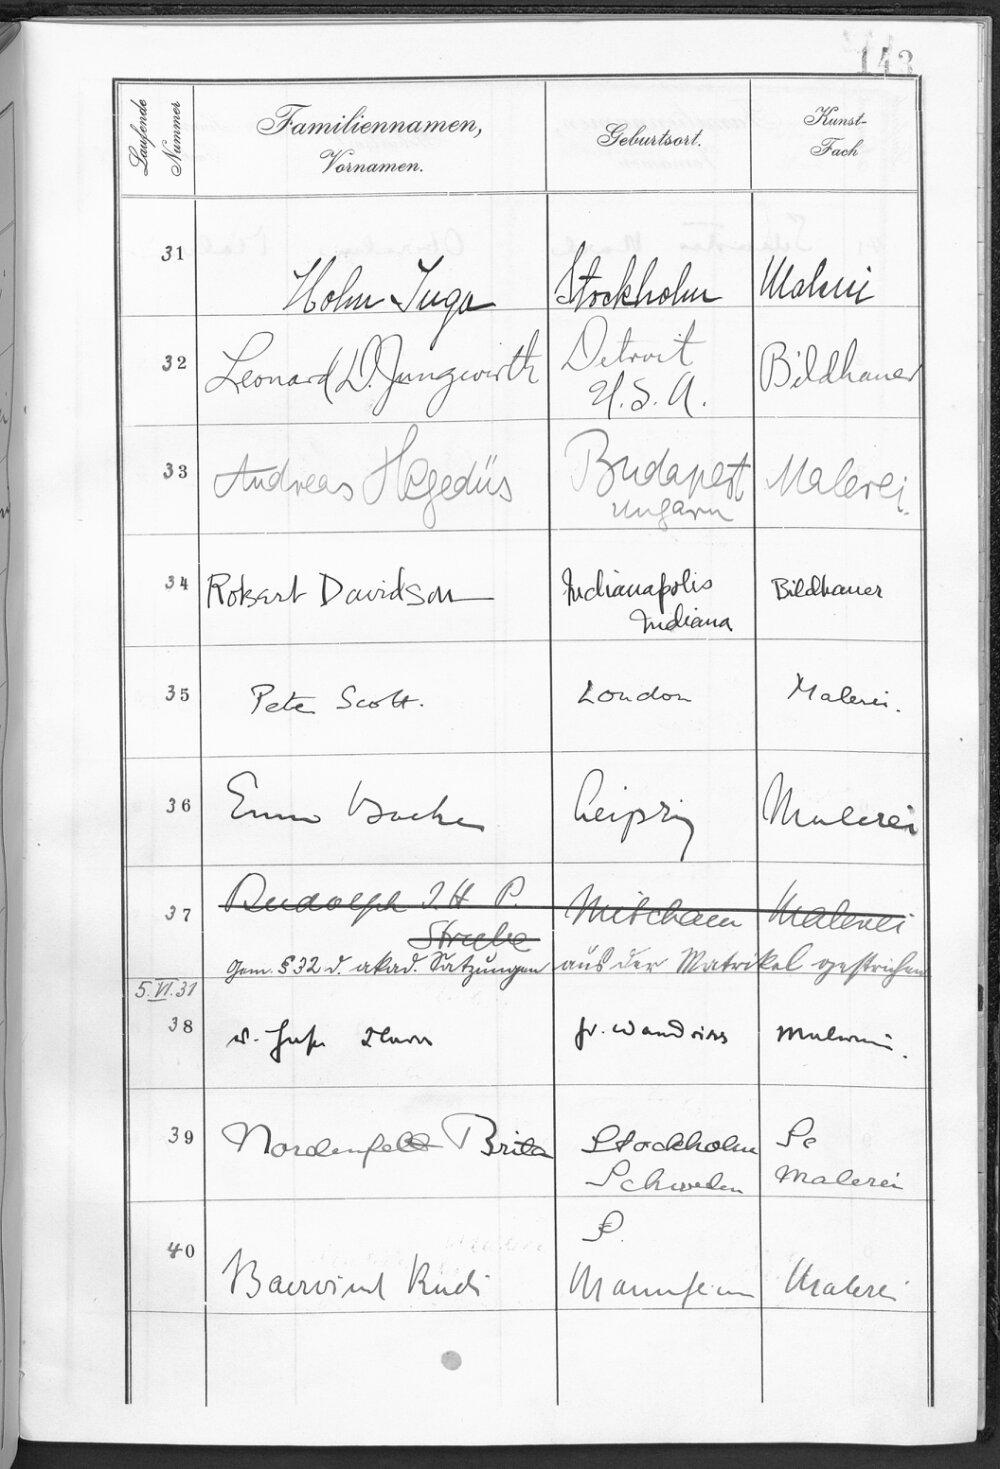 143
Laufende Nummer
Familiennamen, Vornamen.
Geburtsort.
Kunst-Fach
31 Holm Inga Stockholm Malerei
32 Leonard D. Jungwirth Detroit U.S.A. Bildhauer
33 Andreas Hegedüs Budapest Ungarn Malerei.
34 Robert Davidson Indianapolis Indiana Bildhauer
35 Pete Scott. London Malerei.
36 Leipzig Malerei
37 Rudolph J. H. P. Strube Malerei
Gem. § 32 d. akad. Satzungen aus der Matrikel gestrichen
5.VI.31
38 v.
39 Nordenfelt Brita Stockholm Schweden Malerei
40 Baerwind Rudi Mannheim Malerei